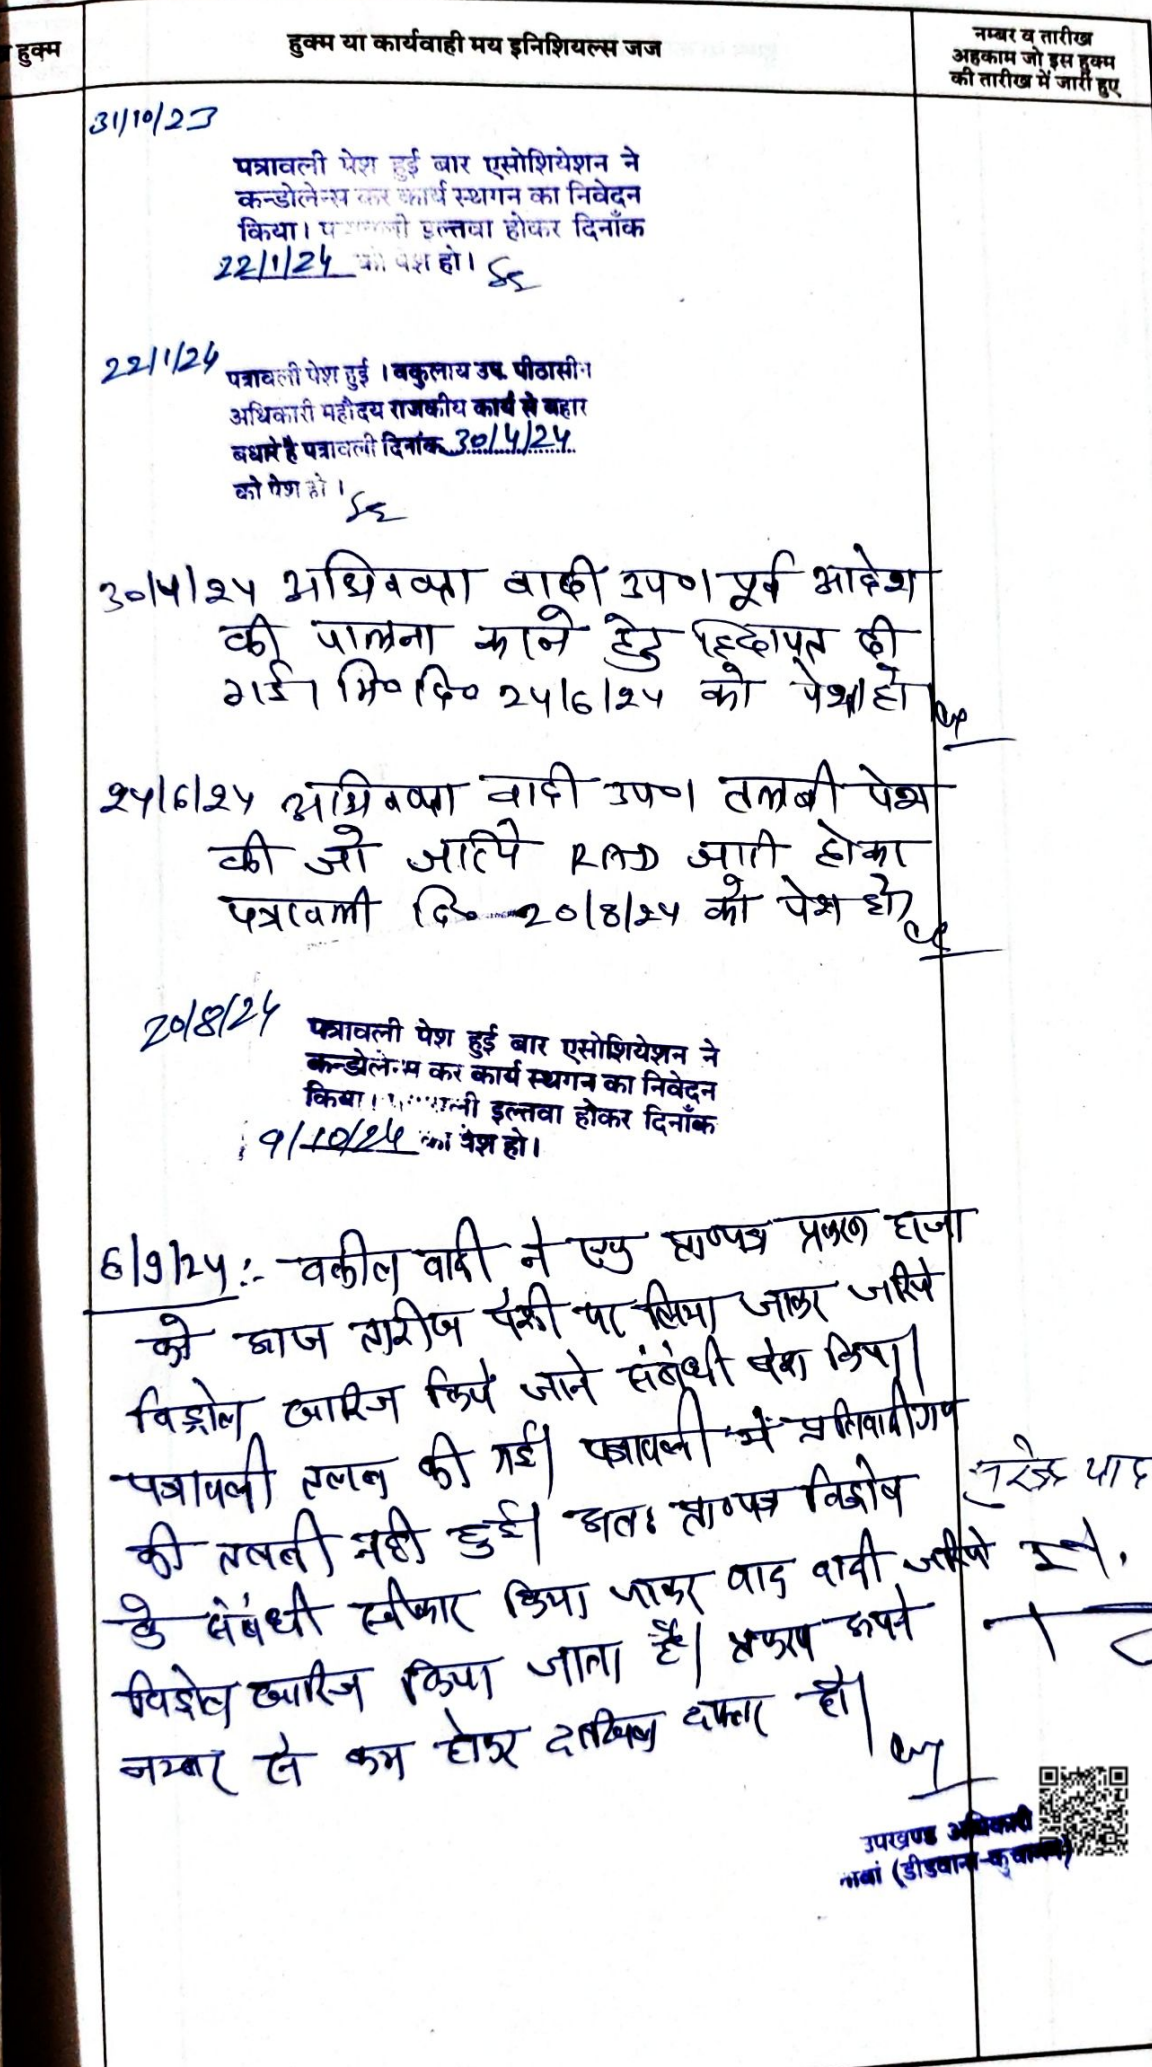 हुक्म
हुक्म या कार्यवाही मय इनिशियल्स जज
नम्बर व तारीख
अहकाम जो इस हुक्म
की तारीख में जारी हुए
31/10/23
पत्रावली पेश हुई बार एसोशियेशन ने
कन्डोलेन्स कर कार्य स्थगन का निवेदन
किया। पत्रावली इल्तवा होकर दिनाँक
22/1/24 को पेश हो।
22/1/24
पत्रावली पेश हुई । वकुलाय उप. पीठासीन
अधिकारी महौदय राजकीय कार्य से बहार
बधारे है पत्रावली दिनांक 30/4/24
को पेश हो ।
30/4/24 अधिवक्ता वादी उप० पूर्व आदेश
की पालना करने हेतु हिदायत दी
गई। मि० दि० 24/6/24 को पेश हो
24/6/24 अधिवक्ता वादी उप० तलबी पेश
की जो जरिये RAD जारी होकर
पत्रावली दि० 20/8/24 को पेश हो
20/8/24
पत्रावली पेश हुई बार एसोशियेशन ने
कन्डोलेन्स कर कार्य स्थगन का निवेदन
किया। पत्रावली इल्तवा होकर दिनाँक
9/10/24 को पेश हो।
6/9/24 :- वकील वादी ने एक प्रा०पत्र प्रकरण हाजा
को आज तारीख पेशी पर लिया जाकर जरिये
विड्रोल खारिज किये जाने संबंधी पेश किया।
पत्रावली तलब की गई। पत्रावली में प्रतिवादीगण
की तलबी नही हुई। अतः प्रा०पत्र विड्रोल
के संबंधी स्वीकार किया जाकर वाद वादी जरिये
विड्रोल खारिज किया जाता है। प्रकरण अपने
नम्बर से कम होकर दाखिल दफ्तर हो।
उपखण्ड अधिकारी
नावां (डीडवाना-कुचामन)